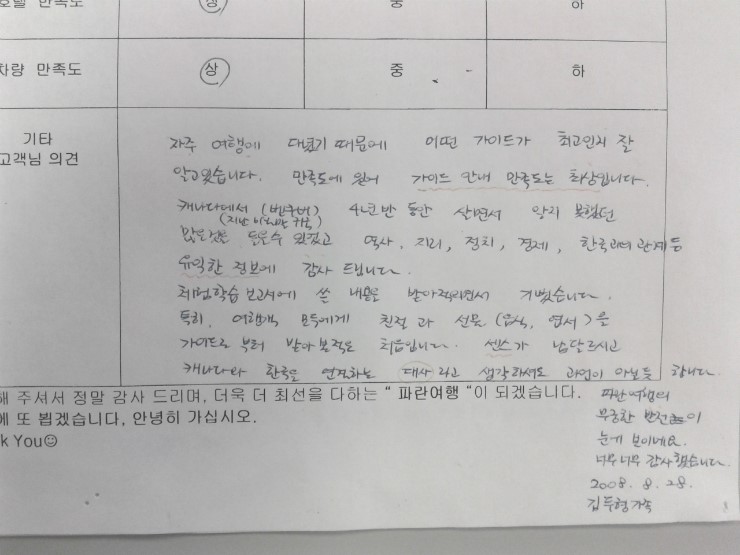 호텔 만족도 상 중 하
차량 만족도 상 중 하
기타
고객님 의견
자주 여행에 대녔기 때문에 어떤 가이드가 최고인지 잘
알고있습니다. 만족도에 있어 가이드 안내 만족도는 최상입니다.
캐나다에서 (밴쿠버) 4년반 동안 살면서 알지 못했던
(지난 귀국)
많은것을 들을수 있었고 역사, 지리, 정치, 경제, 한국과의 관계등
유익한 정보에 감사 드립니다.
체험학습 보고서에 쓸 내용을 받아적으면서 기뻤습니다.
특히, 여행객 모두에게 친절과 선물 (음식, 엽서)을
가이드로 부터 받아 본적은 처음입니다. 센스가 남달르시고
캐나다와 한국을 연결하는 대사라고 생각하셔도 과언이 아닐듯 합니다.
해 주셔서 정말 감사 드리며, 더욱 더 최선을 다하는 " 파란여행 "이 되겠습니다.
에 또 뵙겠습니다, 안녕히 가십시오.
k You☺
파란여행의
무궁한 발전이
눈에 보이네요.
너무너무 감사했습니다.
2008. 8. 28.
김두형가족